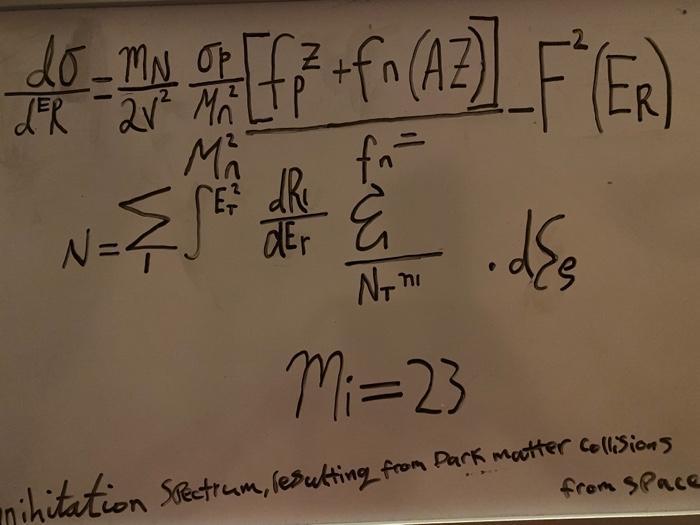 dσ/dER = mN/2v² σp/Mn² [fp^Z + fn(AZ)] - F²(ER)
Mn² fn=
N = Σ1 ∫ET² dRi/dEr Σ/NT^m1 . dξs
Mi = 23
nihitation Spectrum, resulting from Dark matter collisions
from space